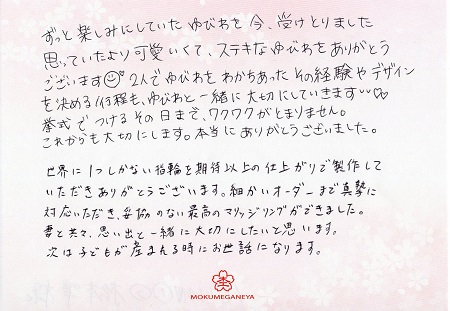 ずっと楽しみにしていたゆびわを今、受けとりました
思っていたより可愛いくて、ステキなゆびわをありがとう
ございます 2人でゆびわをわかちあったその経験やデザイン
を決める行程も、ゆびわと一緒に大切にしていきます
挙式でつけるその日まで、ワクワクがとまりません。
これからも大切にします。本当にありがとうございました。
世界に1つしかない指輪を期待以上の仕上がりで製作して
いただきありがとうございます。細かいオーダーまで真摯に
対応いただき、妥協のない最高のマリッジリングができました。
妻と共々、思い出と一緒に大切にしたいと思います。
次は子どもが産まれる時にお世話になります。
MOKUMEGANEYA